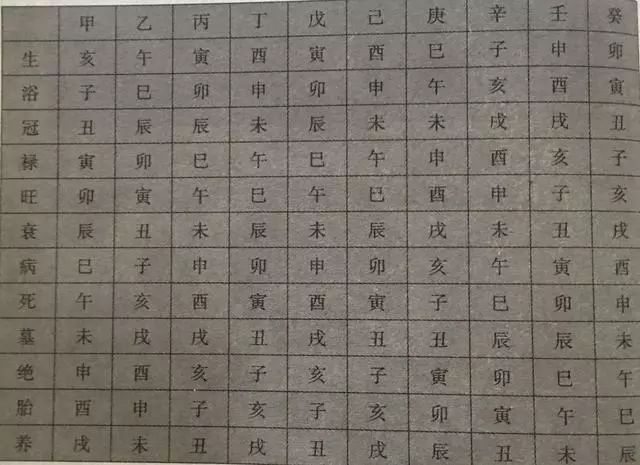 甲 乙 丙 丁 戊 己 庚 辛 壬 癸
生 亥 午 寅 酉 寅 酉 巳 子 申 卯
浴 子 巳 卯 申 卯 申 午 亥 酉 寅
冠 丑 辰 辰 未 辰 未 未 戌 戌 丑
禄 寅 卯 巳 午 巳 午 申 酉 亥 子
旺 卯 寅 午 巳 午 巳 酉 申 子 亥
衰 辰 丑 未 辰 未 辰 戌 未 丑 戌
病 巳 子 申 卯 申 卯 亥 午 寅 酉
死 午 亥 酉 寅 酉 寅 子 巳 卯 申
墓 未 戌 戌 丑 戌 丑 丑 辰 辰 未
绝 申 酉 亥 子 亥 子 寅 卯 巳 午
胎 酉 申 子 亥 子 亥 卯 寅 午 巳
养 戌 未 丑 戌 丑 戌 辰 丑 未 辰